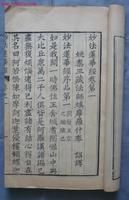 妙法蓮華經卷第一
姚秦三藏法師鳩摩羅什奉 詔譯
妙法蓮華經序品第一
如是我聞一時佛住王舍城耆闍崛山中與
大比丘衆萬二千人俱皆是阿羅漢諸漏已
盡無復煩惱逮得己利盡諸有結心得自在
其名曰阿若憍陳如摩訶迦葉優樓頻螺